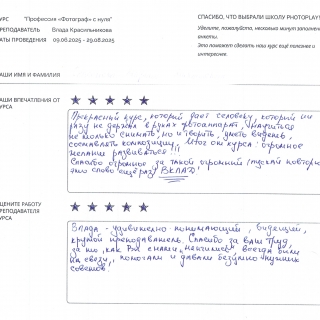 КУРС "Профессия «Фотограф» с нуля"
ПРЕПОДАВАТЕЛЬ Влада Красильникова
ДАТЫ ПРОВЕДЕНИЯ 09.06.2025 - 29.08.2025
СПАСИБО, ЧТО ВЫБРАЛИ ШКОЛУ PHOTOPLAY!
Уделите, пожалуйста, несколько минут заполнению
анкеты.
Это поможет сделать наш курс ещё полезнее и
интереснее.
ВАШИ ИМЯ И ФАМИЛИЯ
ВАШИ ВПЕЧАТЛЕНИЯ ОТ
КУРСА
Прекрасный курс, который дает человеку, который ни
разу не держал в руках фотоаппарат, научиться
не только снимать, но и творить, уметь видеть,
составлять композицию. Итог от курса: огромное
желание развиваться!!!
Спасибо огромное за такой огромный (пускай повторю
это слово ещё раз) ВКЛАД!
ОЦЕНИТЕ РАБОТУ
ПРЕПОДАВАТЕЛЯ
КУРСА
Влада - удивительно понимающий, видящий,
крутой преподаватель. Спасибо за ваш труд,
за то, как Вы с нами, всегда были
на связи, помогали и давали безумно нужных
советов.